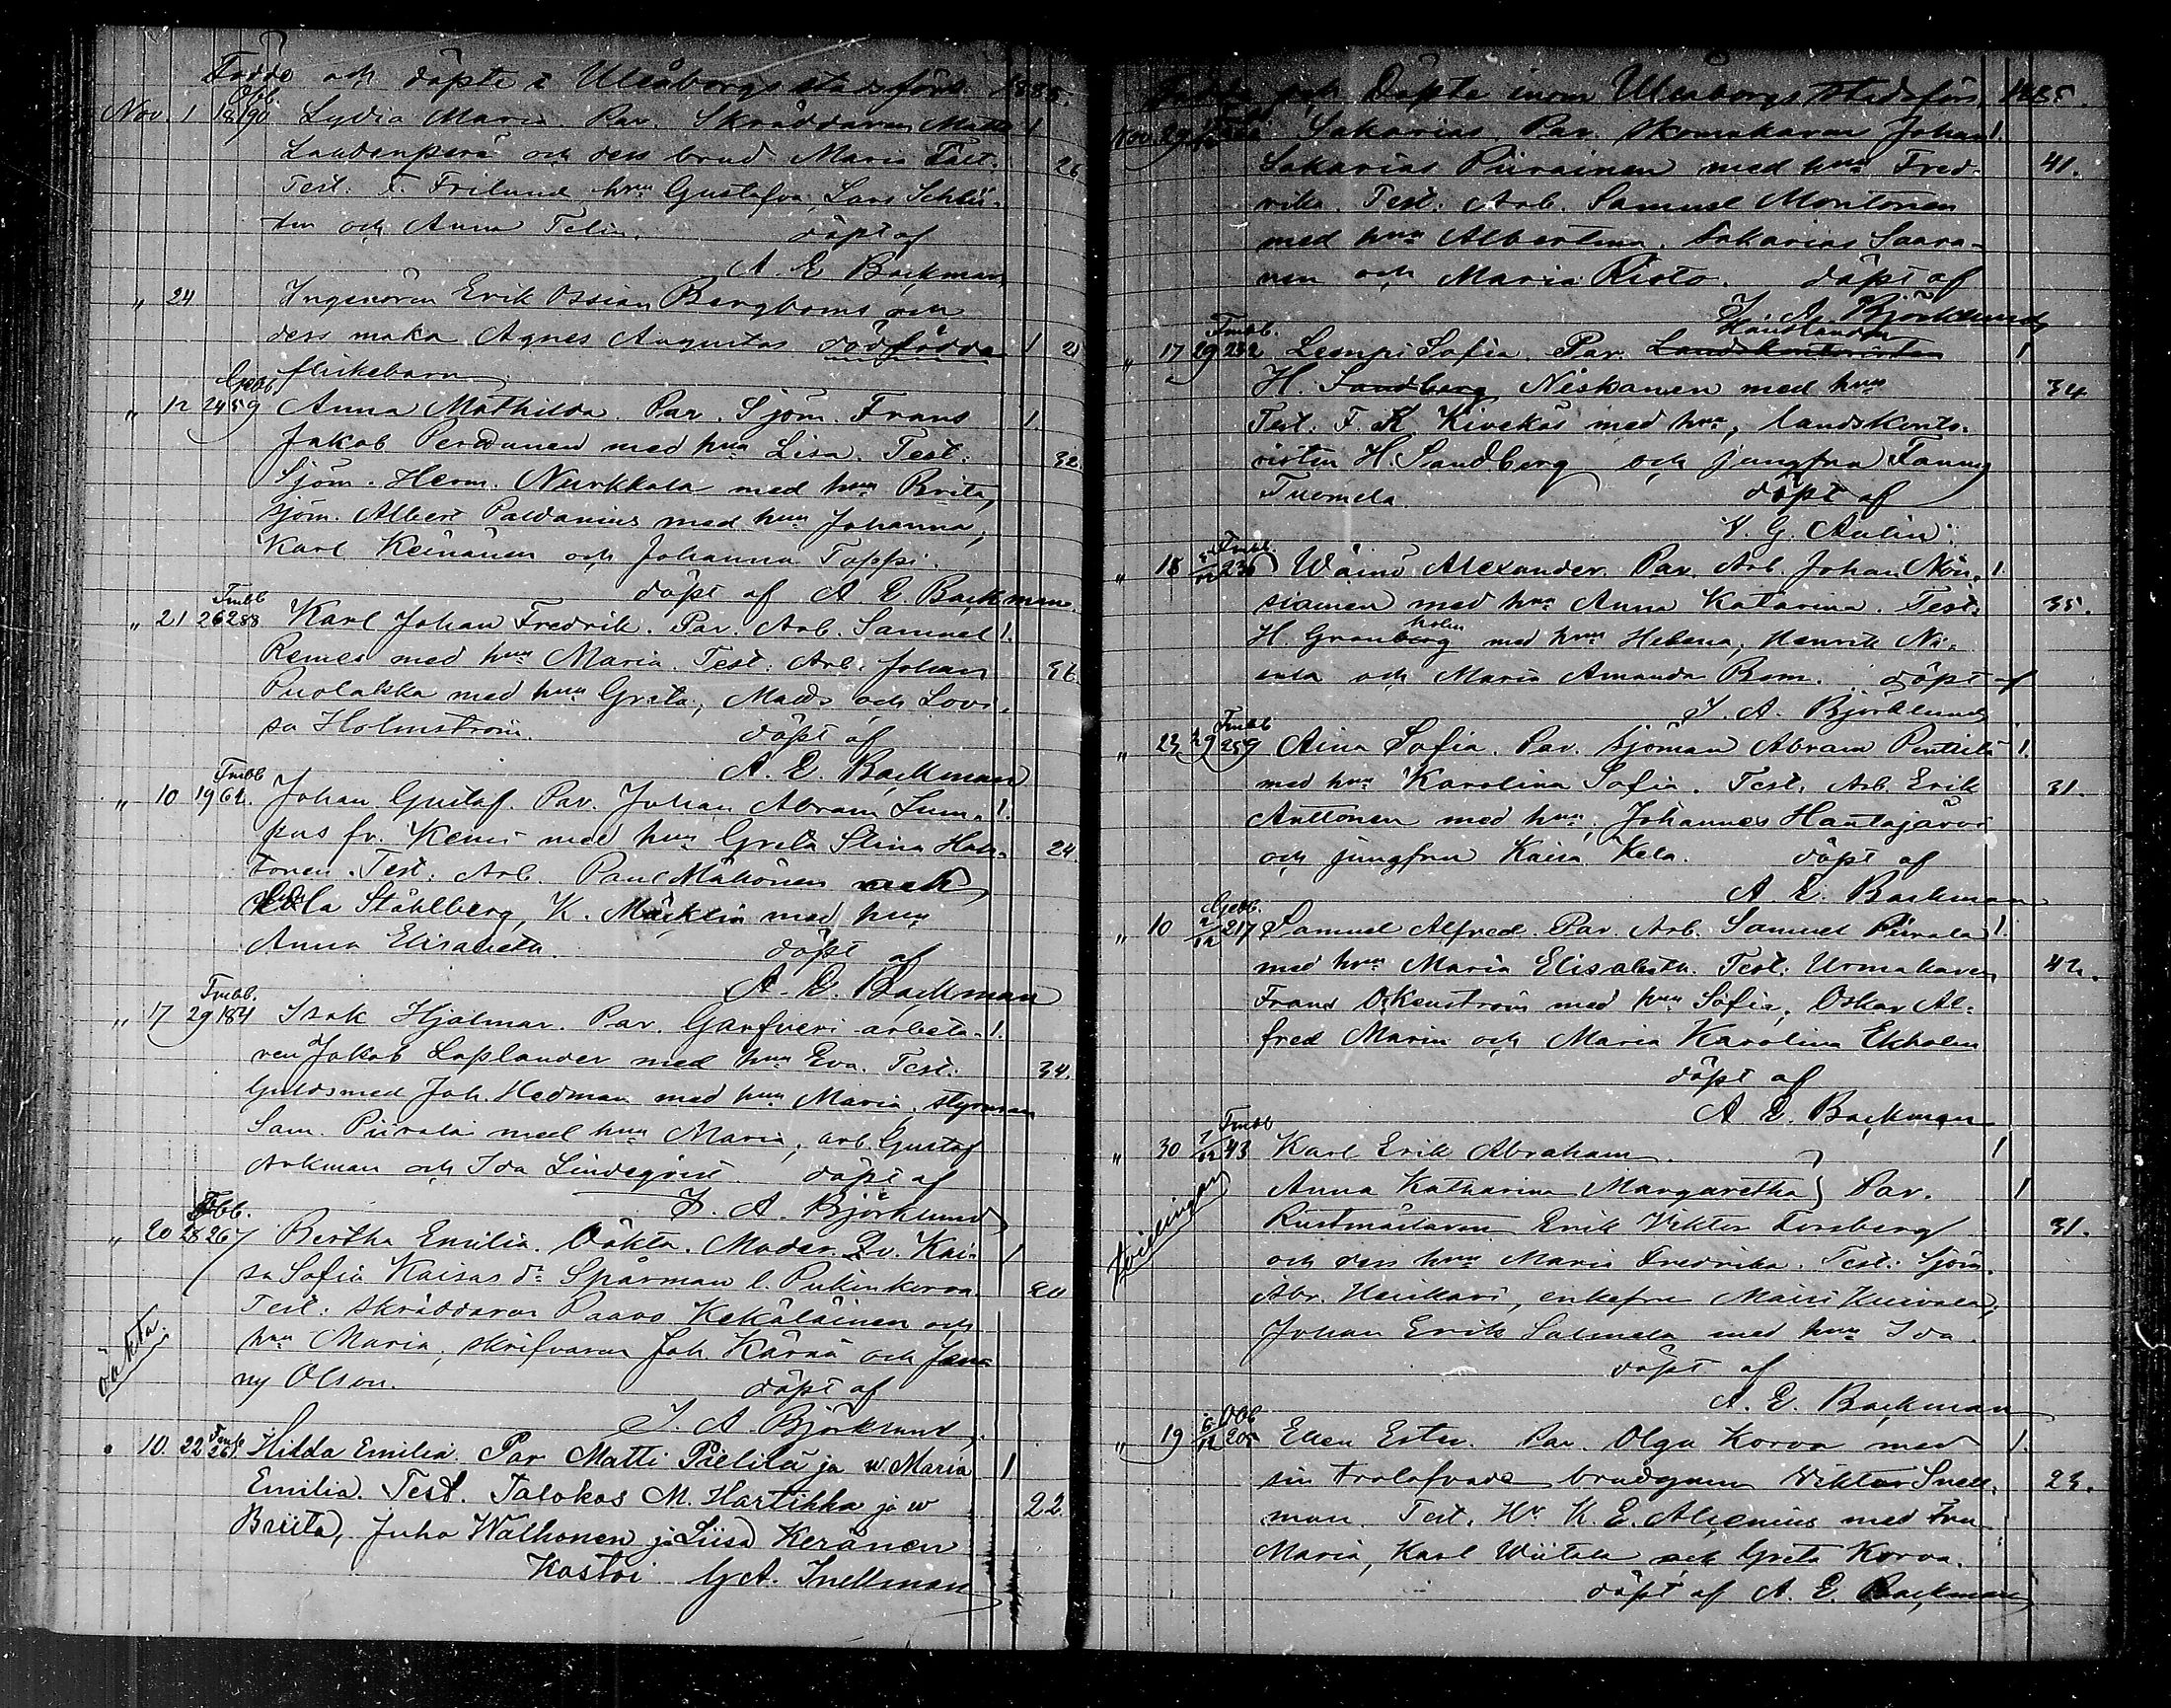 Födde och döpte i Uleåborgs stadsförs. 1885.
Nov. 1 18 190 Lydia Maria Par. Skräddaren Matts 1
Laudenperä och dess brud Maria Fält. 26
Test. F. Frilund hru Gustafva, Lars Schlü-
ter och Anna Telin. döpt af
A. E. Backman
" 24 Ingeniören Erik Ossian Bergboms och
dess maka Agnes Augustas dödfödda 1 21
flickebarn
" 12 24 59 Anna Mathilda. Par. Sjöm. Frans 1.
Jakob Perdanen med hru Lisa. Test. 32.
Sjöm. Herm. Nurkkala med hru Brita,
sjöm. Albert Paldanius med hru Johanna,
Karl Keinänen och Johanna Toppi.
döpt af A. E. Backman.
Tmbb
" 21 26 288 Karl Johan Fredrik. Par. Arb. Samuel 1.
Remes med hru Maria. Test: Arb. Johan 36.
Puolakka med hru Greta, Matts och Lovi-
sa Holmström. döpt af
A. E. Backman
Tmbb
" 10 19 61. Johan Gustaf. Par. Johan Abram Lum- 1.
pus fr. Kemi med hru Greta Stina Hol- 24
tonen. Test: Arb. Paul Mähönen och
Ståhlberg, K. Mäcklin med hru
Anna Elisabeth. döpt af
A. E. Backman
Tmbb.
" 17 29 184 Isak Hjalmar. Par. Garfveri arbeta- 1.
ren Jakob Laplander med hru Eva. Test. 34.
Guldsmed Joh. Hedman med hru Maria, styrman
Sam. Piirala med hru Maria, arb. Gustaf
Arkman och Ida Lindeqvist. döpt af
J. A. Björklund
" 20 28 267 Bertha Emilia. Oäkta. Moder Qv. Kai- 1
sa Sofia Kaisas dr Spårman l. Pukinkorva 20
Test: skräddaren Paavo Kekäläinen och
hru Maria, skrifvaren Joh. Kärnä och Fan-
ny Olson. döpt af
oäkta.
J. A. Björklund.
" 10. 22 261 Hilda Emilia. Par Matti Pielilä ja w. Maria 1
Emilia. Test. Talokas M. Hartikka ja w 22.
Briita, Juho Walkonen ja Liisa Keränen
Kastoi G. A. Snellman
Födde och Döpte inom Uleåborgs Stadsförs. 1885.
Nov. 29 Sakarias Par. skomakaren Johan 1.
Sakarias Piirainen med hru Fred- 41.
rika. Test. Arb. Samuel Montonen
med hru Albertina. Sakarias Saara-
nen och Maria Risto. döpt af
J. A. Björklund
Tmbb.
" 17 29 232 Lempi Sofia. Par. Landskontoristen 1
H. Sandberg Niskanen med hru 34
Test. F. K. Kivekäs med hru, landskonto-
risten H. Sandberg och jungfru Fanny
Tuomela. döpt af
V. G. Aulin.
Tmbb.
" 18 Wäinö Alexander. Par. Arb. Johan Nou- 1.
siainen med hru Anna Katarina. Test. 35.
holm
H. Granberg med hru Helena, Henrik Ni-
enla och Maria Amanda Bom. döpt af
J. A. Björklund
Tmbb
" 23 29 259 Aina Sofia. Par. sjöman Abram Penttilä 1.
med hru Karolina Sofia. Test. Arb. Erik 31.
Anttonen med hru, Johannes Hautajärvi
och jungfru Kaisa Kela. döpt af
A. E. Backman
" 10 2/12 217 Samuel Alfred. Par. Arb. Samuel Piirala 1.
med hru Maria Elisabeth. Test: Urmakaren
42.
Frans Okenström med hru Sofia, Oskar Al-
fred Marin och Maria Karolina Ekholm
döpt af
A. E. Backman
Tmbb
" 30 7/12 43 Karl Erik Abraham 1
Anna Katharina Margaretha } Par. 1
tvillingar
Rustmästaren Erik Viktor Forsberg 31.
och dess hru Maria Fredrika. Test: Sjöm.
Abr. Heikari, enkefru Maria Kuivala,
Johan Erik Salmela med hru Ida.
döpt af
A. E. Backman
" 19 6/12 205 Ellen Ester. Par. Olga Korva med 1.
sin trolofvade brudgum Viktor Snell- 23.
man. Test. Hr K. E. Alcenius med Fru
Maria, Karl Wiitala och Greta Korva.
döpt af A. E. Backman